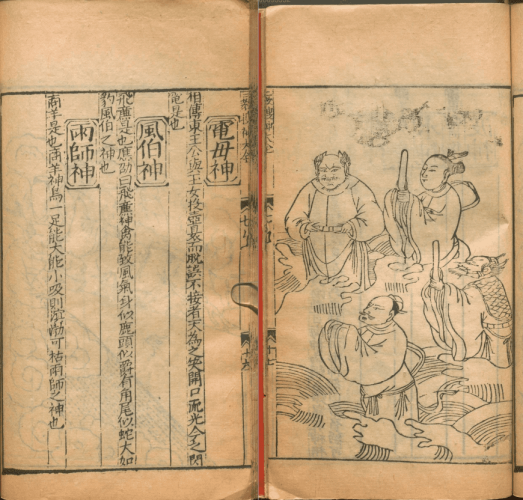 電母神
相傳東王公與玉女投壺梟而脫誤不接者天為之笑開口流光今之閃
電是也
風伯神
飛廉是也應劭曰飛廉神禽能致風氣身似鹿頭似爵有角尾似蛇大如
豹風伯之神也
雨師神
商羊是也商羊神鳥一足能大能小吸則溟渤可枯雨師之神也